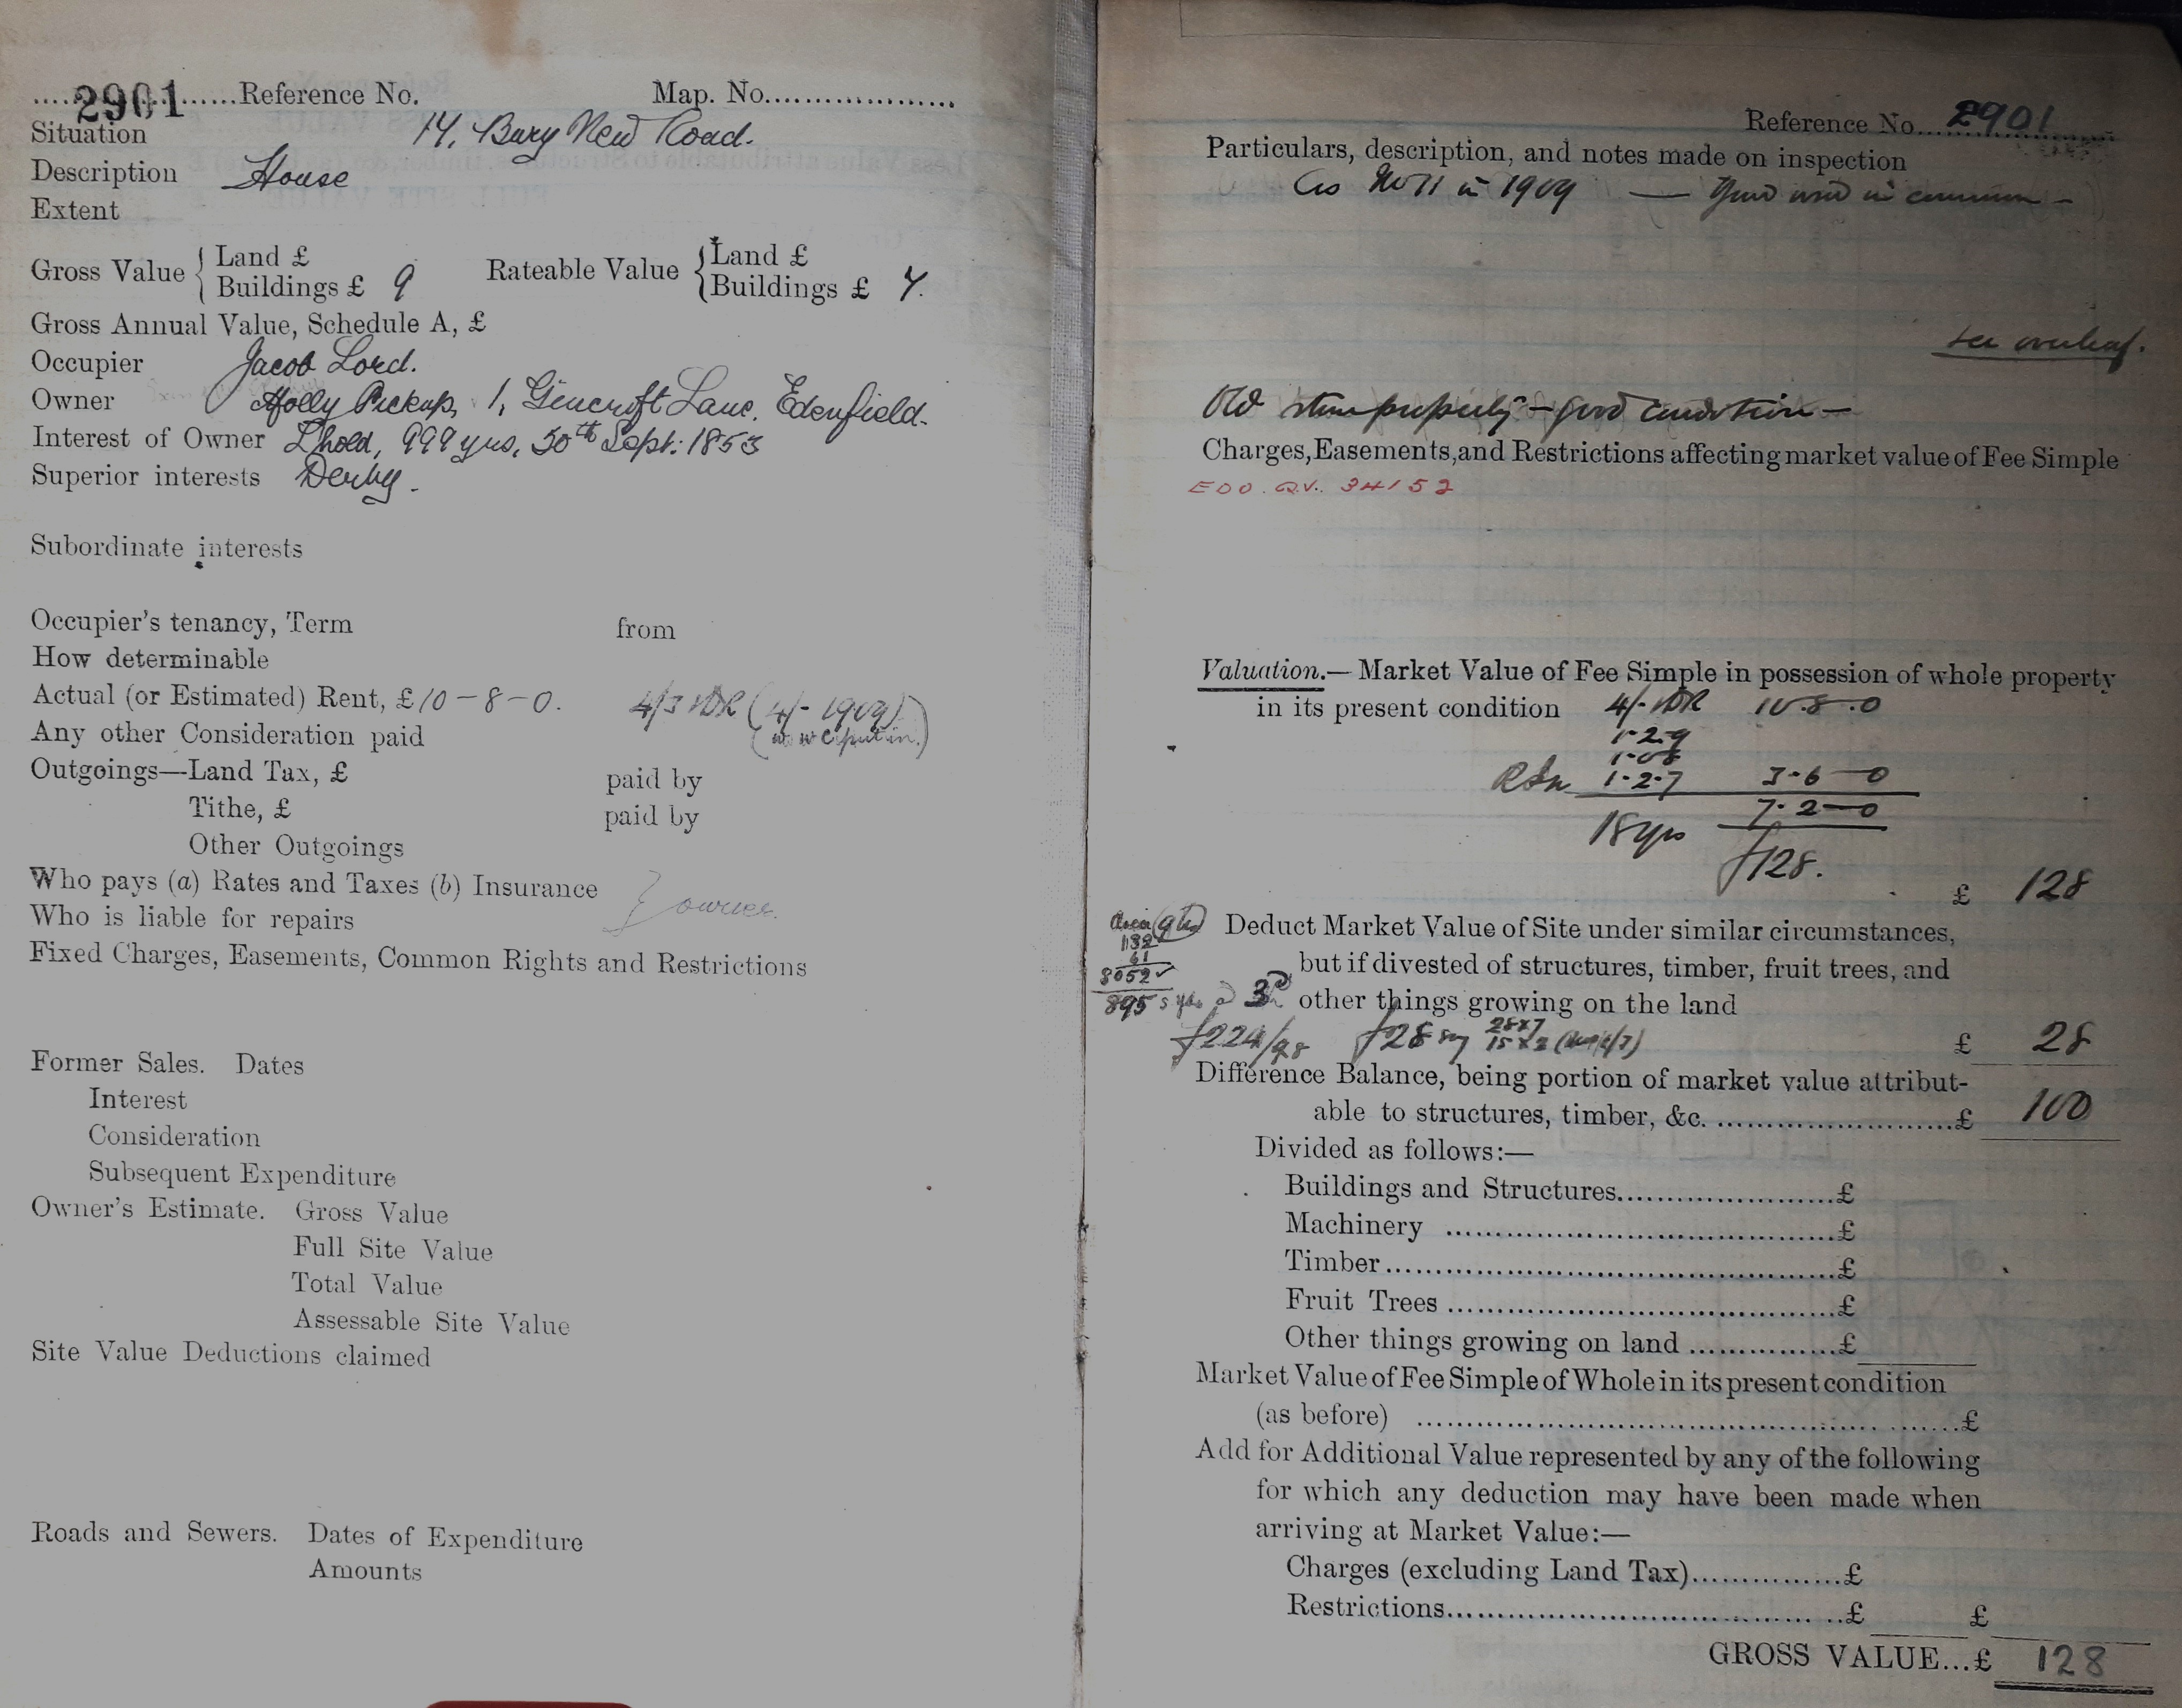 2901 Reference No. Map. No.
Situation 14, Bury New Road.
Description House
Extent
Gross Value { Land £
Buildings £ 9
Rateable Value { Land £
Buildings £ 7.
Gross Annual Value, Schedule A, £
Occupier Jacob Lord.
Owner Molly Pickup, 1, Gincroft Lane, Edenfield.
Interest of Owner Lhold, 999 yrs, 30th Sept: 1853
Superior interests Derby.
Subordinate interests
Occupier's tenancy, Term from
How determinable
Actual (or Estimated) Rent, £10-8-0. 4/3 (4/- 1909)
Any other Consideration paid (w c put in.)
Outgoings—Land Tax, £ paid by
Tithe, £ paid by
Other Outgoings
Who pays (a) Rates and Taxes (b) Insurance } owner.
Who is liable for repairs
Fixed Charges, Easements, Common Rights and Restrictions
Former Sales. Dates
Interest
Consideration
Subsequent Expenditure
Owner's Estimate. Gross Value
Full Site Value
Total Value
Assessable Site Value
Site Value Deductions claimed
Roads and Sewers. Dates of Expenditure
Amounts
Reference No. 2901
Particulars, description, and notes made on inspection
As No 11 in 1909 — Yard used in common —
see overleaf.
Old stone property — good condition —
Charges, Easements, and Restrictions affecting market value of Fee Simple
EDO. Q.V. 34152
Valuation.— Market Value of Fee Simple in possession of whole property
in its present condition 4/- 10.8.0
1-2-9
1-0-8
1-2-7 3-6-0
7-2-0
18 yrs
£128.
£ 128
Area
132
61
8052 ✓
895 s yds @ 3d
Deduct Market Value of Site under similar circumstances,
but if divested of structures, timber, fruit trees, and
other things growing on the land
£224/98 £28 say 28 x 7
15 x 2
£ 28
Difference Balance, being portion of market value attribut-
able to structures, timber, &c. £ 100
Divided as follows:—
Buildings and Structures £
Machinery £
Timber £
Fruit Trees £
Other things growing on land £
Market Value of Fee Simple of Whole in its present condition
(as before) £
Add for Additional Value represented by any of the following
for which any deduction may have been made when
arriving at Market Value:—
Charges (excluding Land Tax) £
Restrictions £ £
GROSS VALUE...£ 128